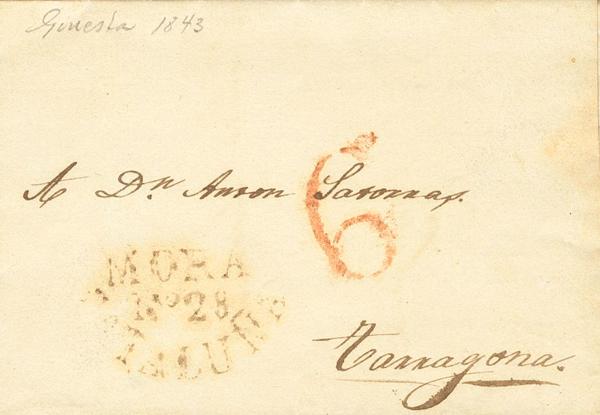 Ginesta 1843
6
A Dn Anton Satorras.
MORA
No 28
CATALUÑA
Tarragona.